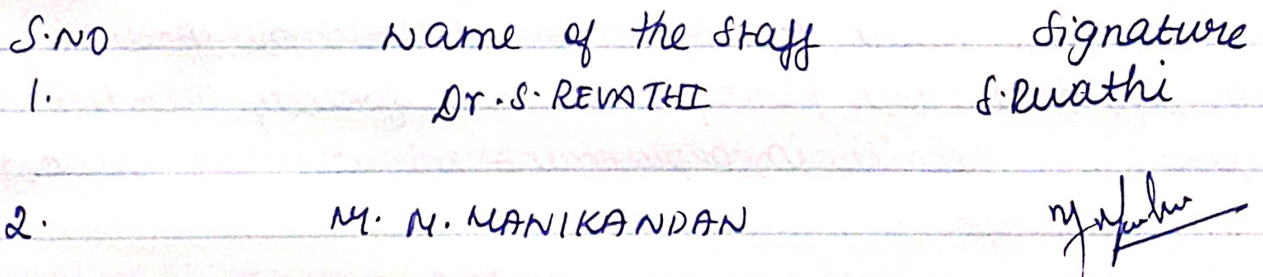 S.NO Name of the Staff Signature
1. Dr.S.REVATHI S.Revathi
2. M. M. MANIKANDAN